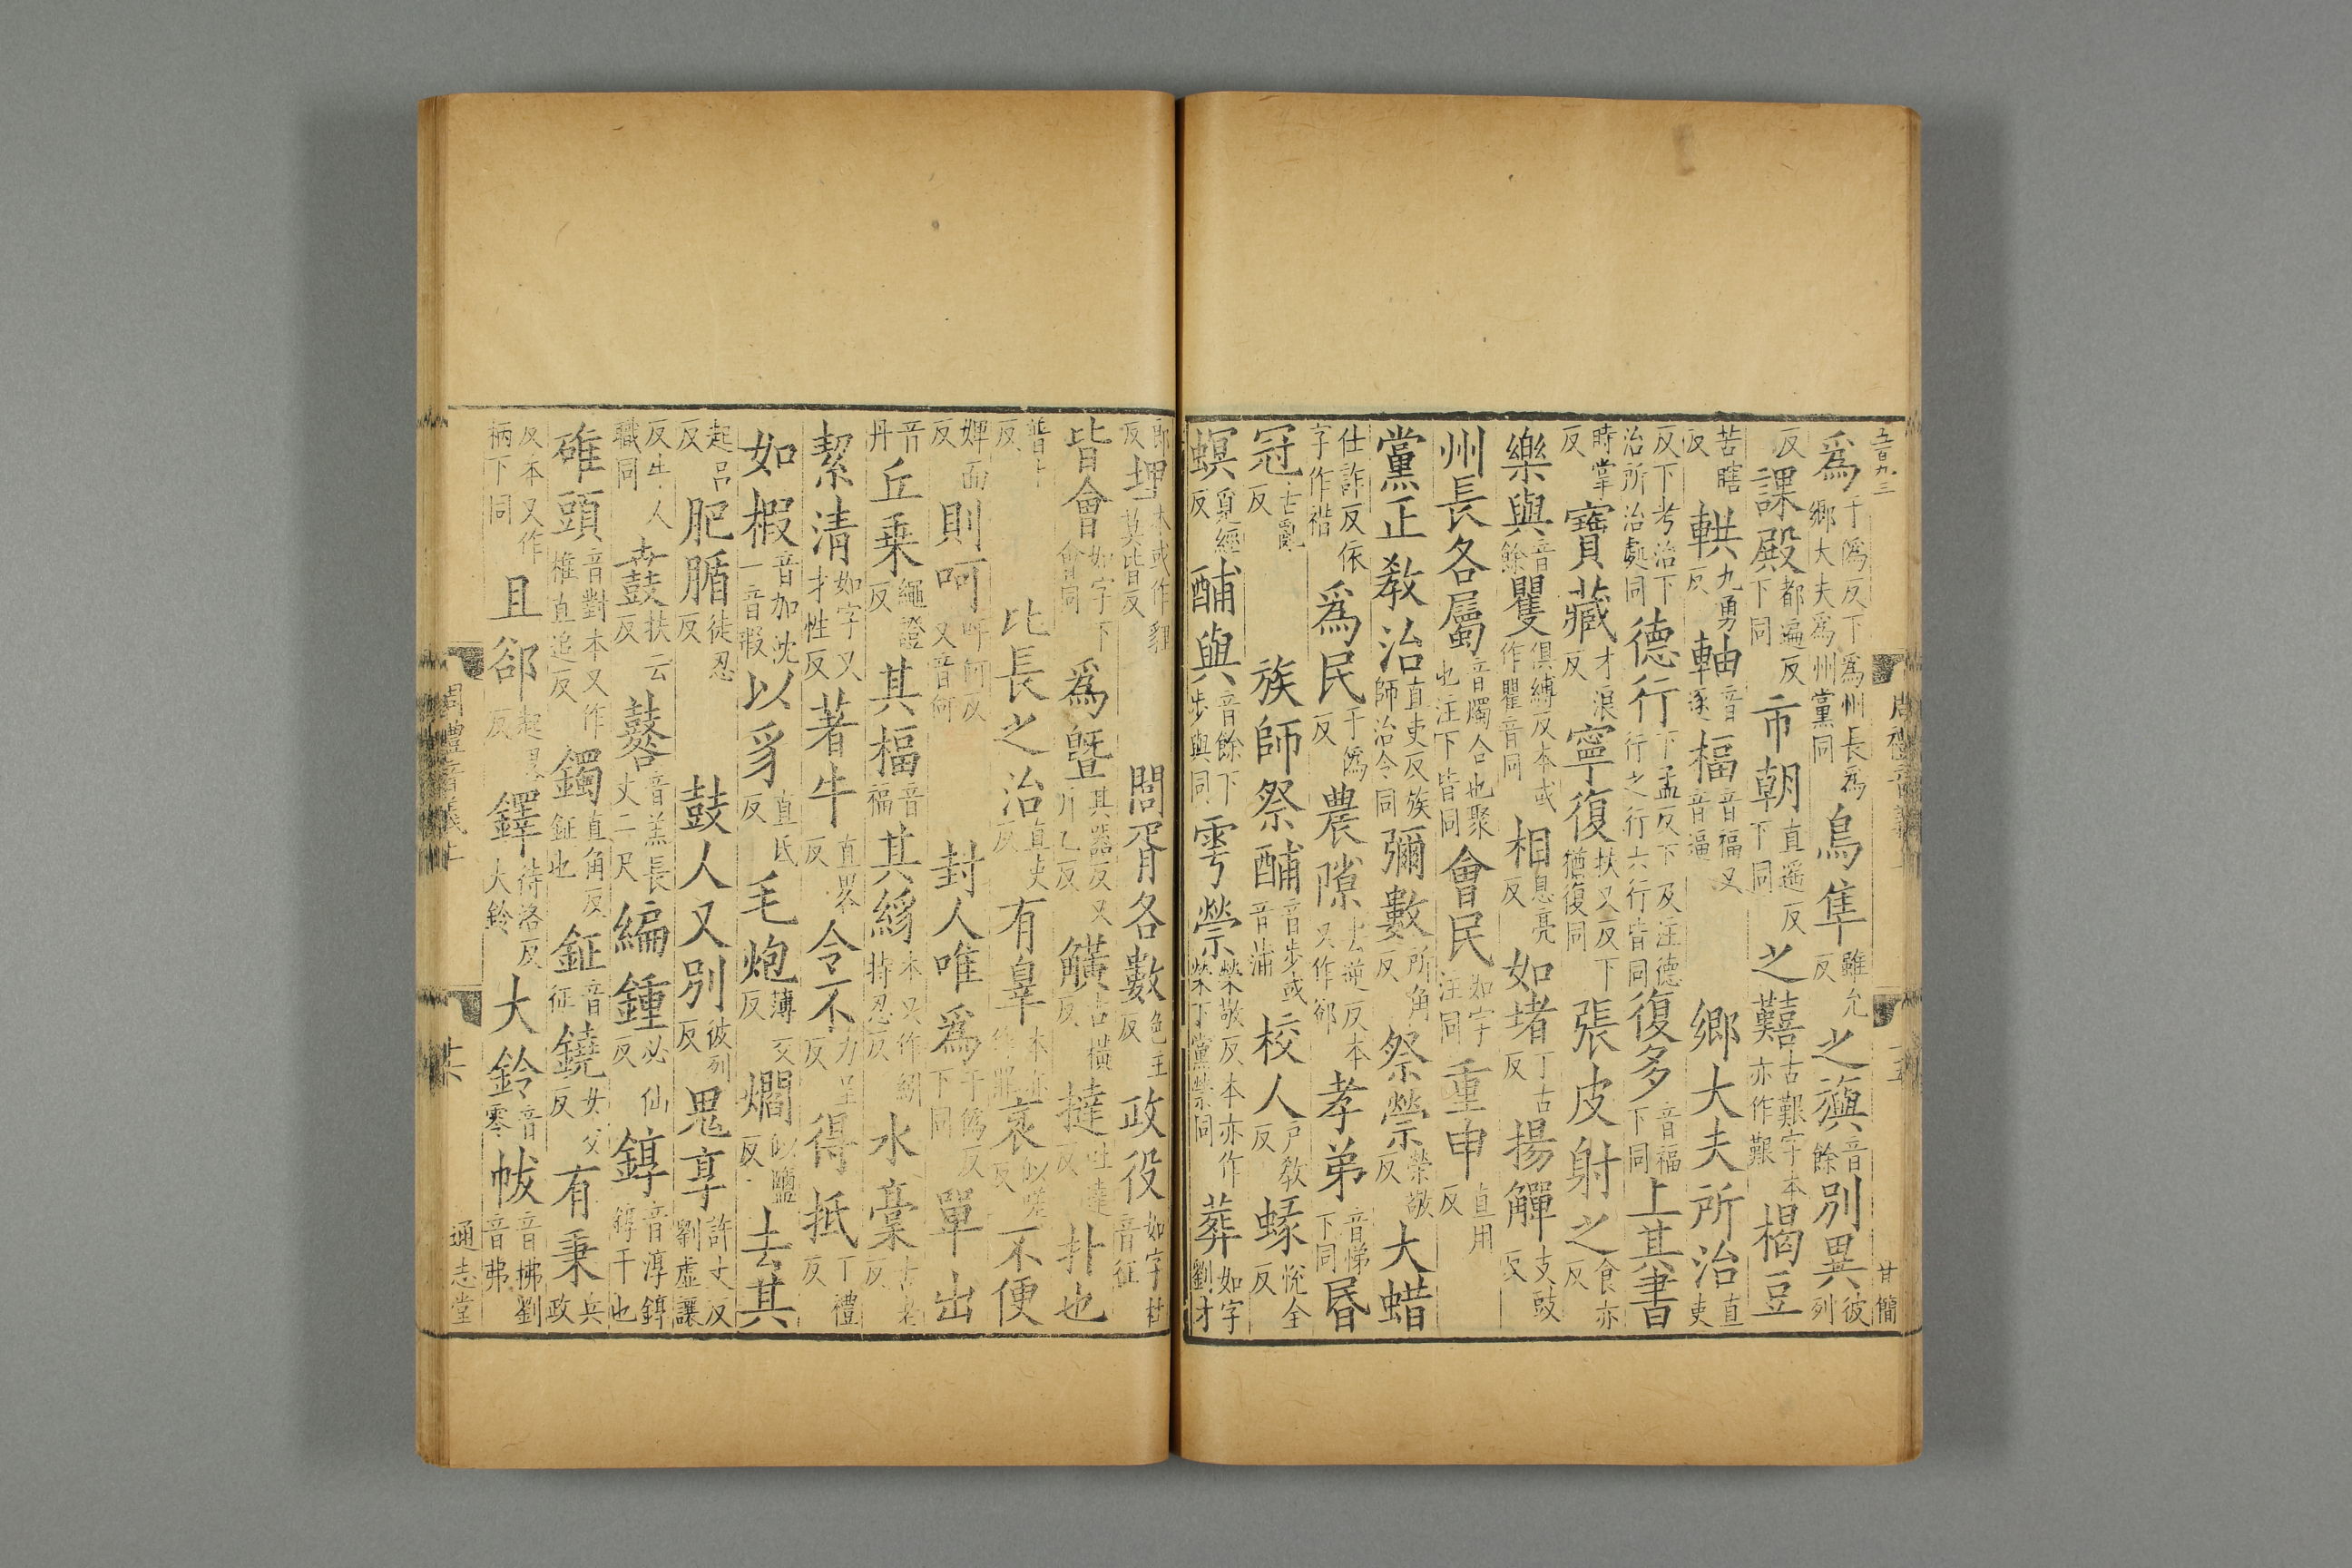 五百九三
甘簡
爲于僞反下爲州長爲鄉大夫爲州黨同鳥隼雖允反之旟音餘別異彼列
反課殿都遍反下同市朝直遥反下同之囏古艱字本亦作艱楬豆
苦瞎反軖九勇反軸音逐楅音福又音逼鄉大夫所治直吏
反下考治下治所治處同德行下孟反下及注德行之行六行皆同復多音福下同上其書
時掌反寶藏才浪反寧復扶又反下猶復同張皮射之食亦反
樂與音餘矍俱縛反本或作瞿音同相息亮反如堵丁古反揚觶支豉反
州長各屬音燭合也聚也注下皆同會民如字注同重申直用反
黨正教治直吏反族師治令同彌數所角反祭禜榮敬反大蜡
仕詐反依字作䄍爲民于僞反農隙去逆反本又作郤孝弟音悌下同昬
冠古亂反族師祭酺音步或音蒲校人戶教反蝝悅全反
螟覓經反酺與音餘下步與同雩禜榮敬反本亦作禜下黨禜同葬如字劉才
郎反埋本或作貍莫皆反閭胥各數色主反政役如字杜音征
皆會如字下會同爲曁其器反又斤乙反觵古橫反撻吐達反扑也
普卜反比長之治直吏反有辠本亦作罪衺似嗟反不便
婢面反則呵呼何反又音何封人唯爲于僞反下同單出
音丹丘乗繩證反其楅音福其絼本又作紖持忍反水稾古老反
絜清如字又才性反著牛直略反令不力呈反得抵丁禮反
如椵音加沈一音椵以豸直氏反毛炮薄交反爓似鹽反去其
起呂反肥腯徒忍反鼓人又別彼列反鬼享許丈反劉虛讓
反牛人職同鼖扶云反鼛音羔長丈二尺編鍾必仙反錞音淳錞錞于也
碓頭音對本又作椎直追反鐲直角反鉦也鉦音征鐃女交反有秉兵政
反本又作柄下同且郤起逆反鐸待洛反大鈴大鈴音零帗音拂劉音弗
通志堂